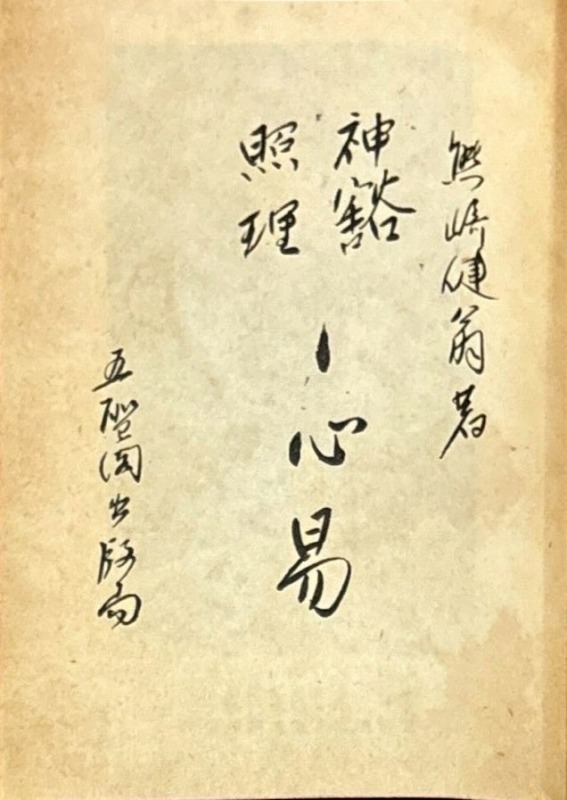 熊﨑健翁著
神豁
照理
丶心易
五聖閣出版局